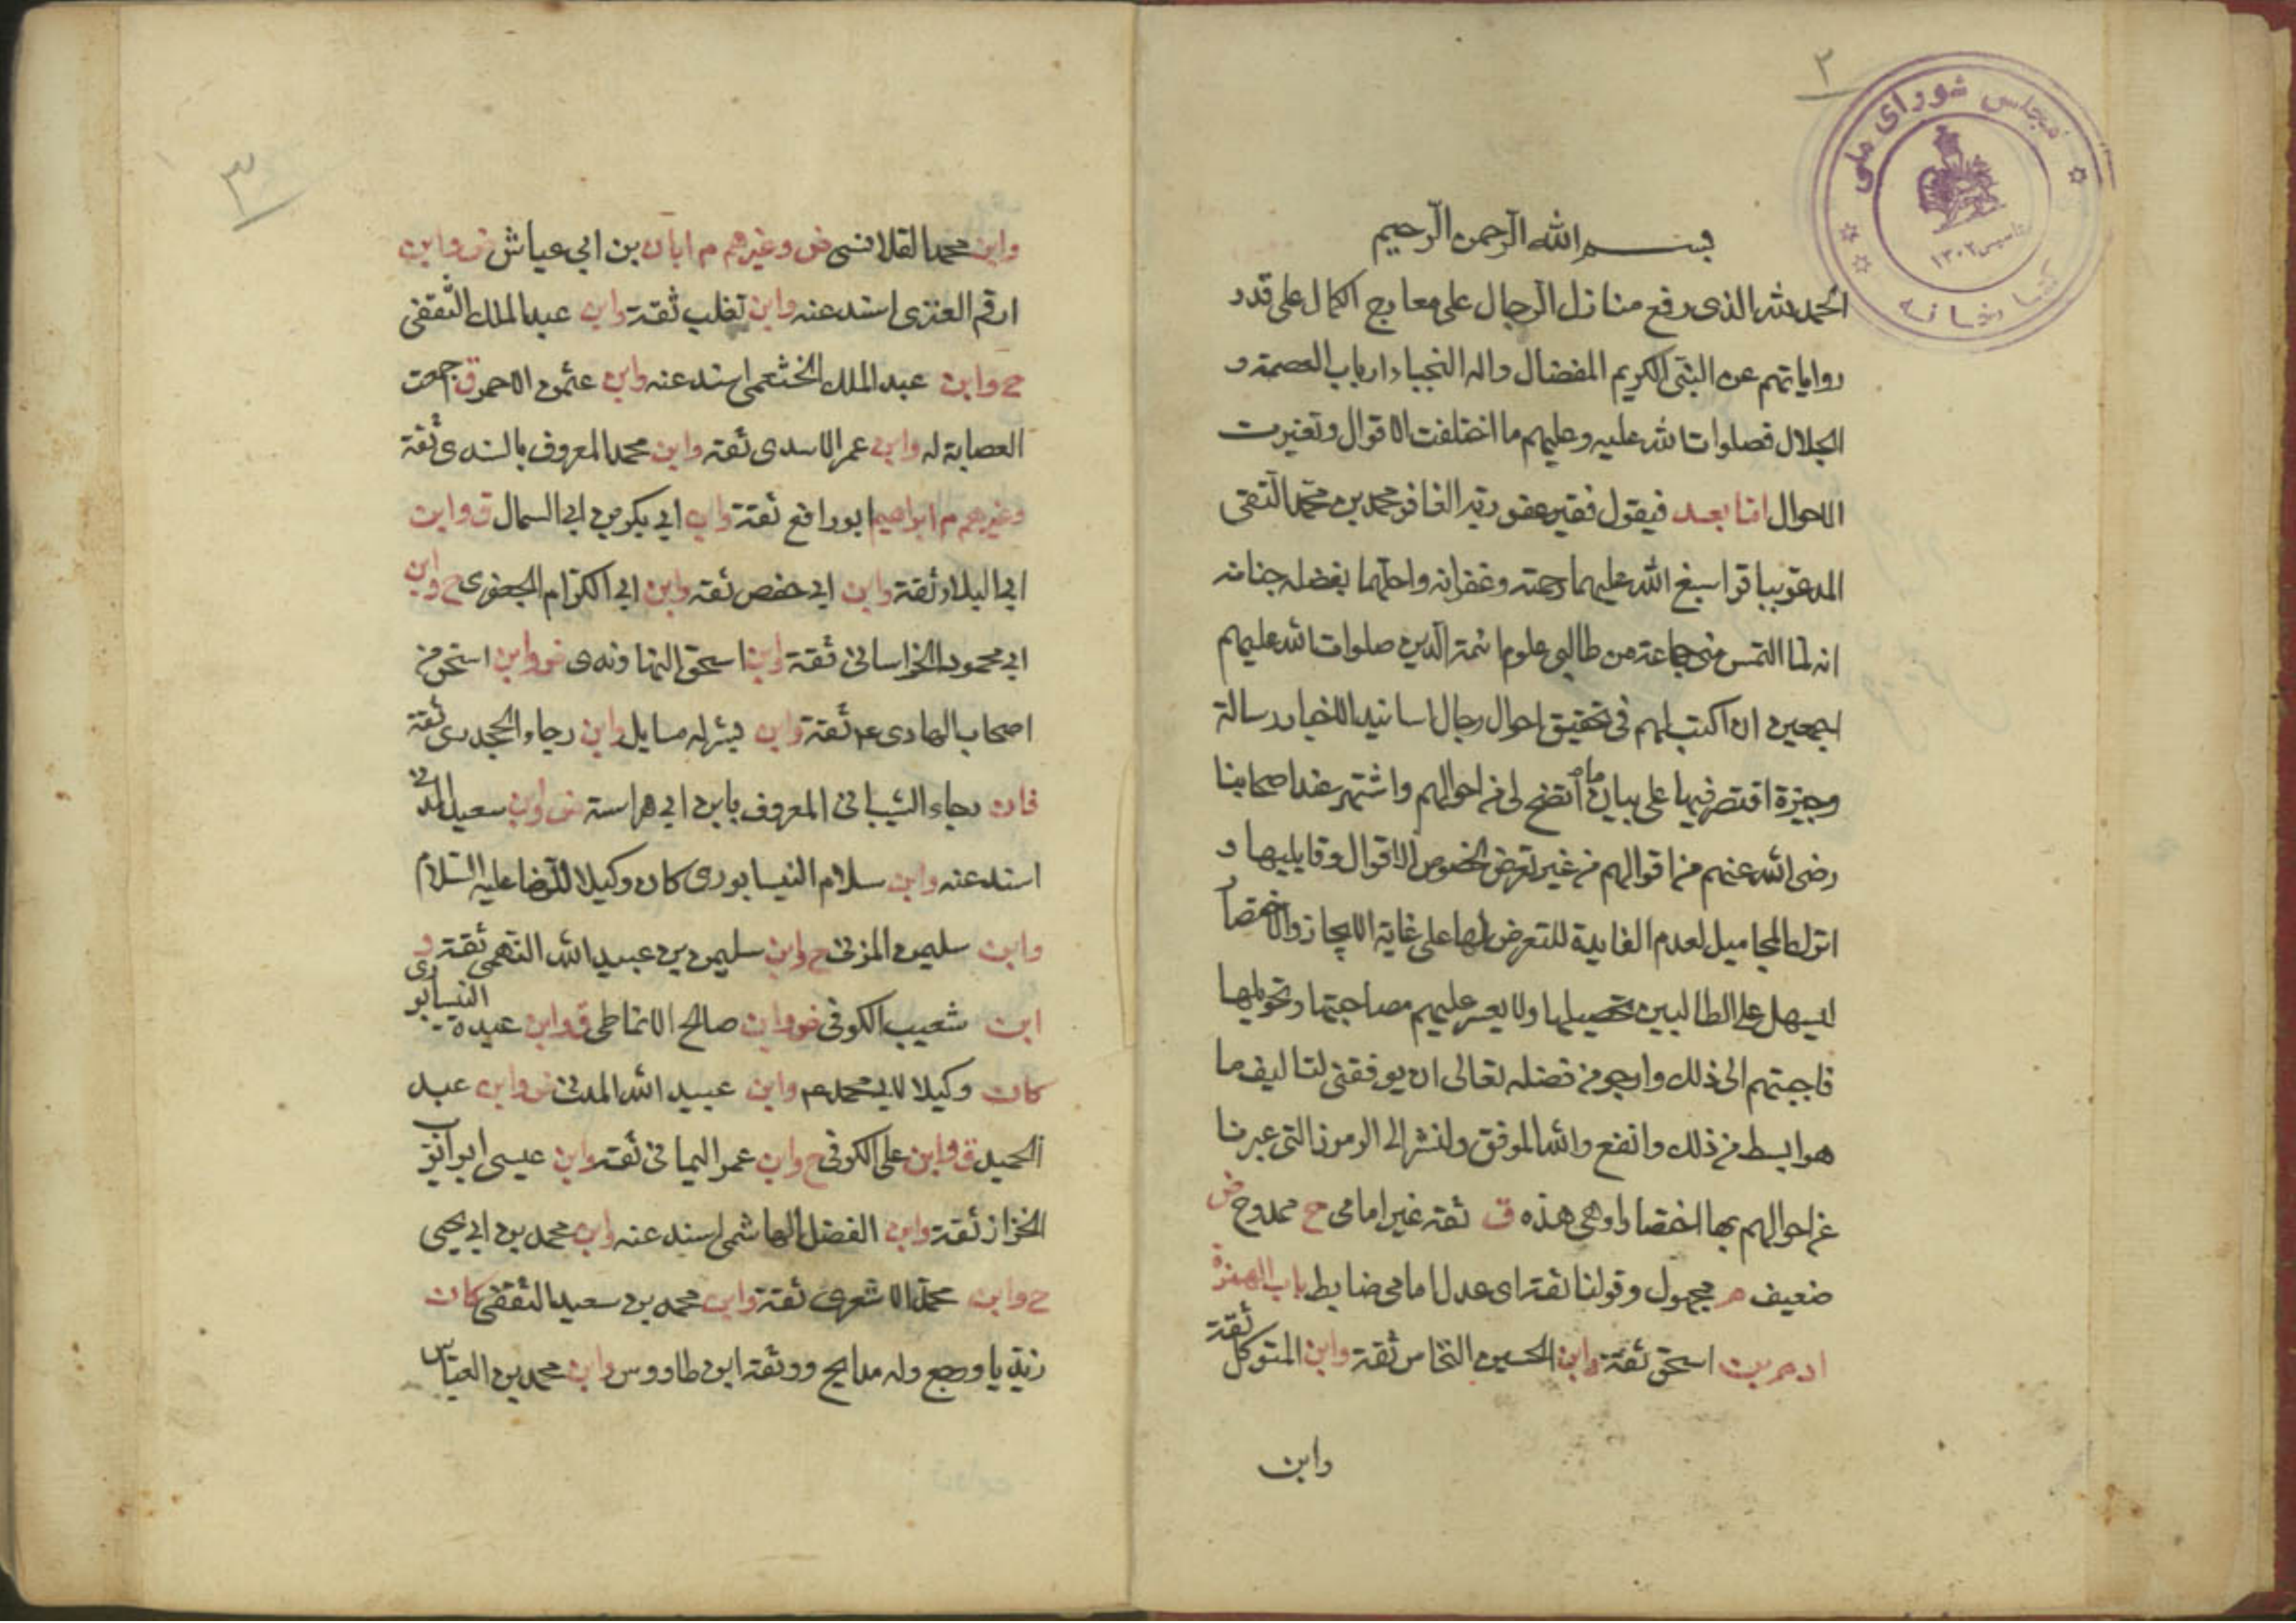 ٢
مجلس شورای ملی
تاسیس ١٣٠٢
کتابخانه
بسم الله الرحمن الرحيم
الحمد لله الذى رفع منازل الرجال على معارج الكمال على قدر
رواياتهم عن النبى الكريم المفضال واله النجباء ارباب العصمة و
الجلال فصلوات الله عليه وعليهم ما اختلفت الاقوال وتغيرت
الاحوال اما بعد فيقول فقير عفو ربه الغافر محمد بن محمد التقى
المدعو بباقر اسبغ الله عليهما رحمته وغفرانه واحلهما بفضله جنانه
انه لما التمس منى جماعة من طالبى علوم ائمة الدين صلوات الله عليهم
اجمعين ان اكتب لهم فى تحقيق احوال رجال اسانيد الاخبار رسالة
وجيزة اقتصر فيها على بيان ما اتضح لى من احوالهم واشتهر عند اصحابنا
رضى الله عنهم من اقوالهم من غير تعرض لخصوص الاقوال وقايليها و
اترك المجاهيل لعدم الفايدة للتعرض لها على غاية الايجاز والاختصار
ليسهل على الطالبين تحصيلها ولا يعسر عليهم مصاحبتها وتحويلها
فاجبتهم الى ذلك وارجو من فضله تعالى ان يوفقنى لتاليف ما
هو ابسط من ذلك وانفع والله الموفق ولنشر الى الرموز التى عبرنا
عن احوالهم بها اختصارا وهى هذه ق ثقة غير امامى ح ممدوح ض
ضعيف م مجهول وقولنا ثقة اى عدل امامى ضابط باب الهمزة
ادم بن اسحق ثقة وابن الحسين النخاس ثقة وابن المتوكل ثقة
وابن
٣
وابن محمد القلانسى ض وغيرهم م ابان بن ابى عياش ض وابن
ارقم العنزى اسند عنه وابن تغلب ثقة وابن عبد الملك الثقفى
ح وابن عبد الملك الخثعمى اسند عنه وابن عثمن الاحمر ق اجمعت
العصابة له وابن عمر الاسدى ثقة وابن محمد المعروف بالسندى ثقة
وغيرهم م ابراهيم ابو رافع ثقة وابن ابى بكر بن ابى السمال ق وابن
ابى البلاد ثقة وابن ابى حفص ثقة وابن ابى الكرام الجعفرى ح وابن
ابى محمود الخراسانى ثقة وابن اسحق النهاوندى ض وابن اسحق من
اصحاب الهادى ع م ثقة وابن بشر له مسايل وابن رجاء الجحدرى ثقة
فان رجاء الشيبانى المعروف بابن ابى هراسة ض وابن سعيد المدنى
اسند عنه وابن سلام النيسابورى كان وكيلا للرضا عليه السلام
وابن سليمن المزنى ح وابن سليمن بن عبيد الله النهمى ثقة و
ابن شعيب الكوفى ض وابن صالح الانماطى ق وابن عبده النيسابورى
كان وكيلا لابى محمد ع م وابن عبيد الله المدنى ض وابن عبد
الحميد ق وابن على الكوفى ح وابن عمر اليمانى ثقة وابن عيسى ابو ايوب
الخزاز ثقة وابن الفضل الهاشمى اسند عنه وابن محمد بن ابى يحيى
ح وابن محمد الاشعرى ثقة وابن محمد بن سعيد الثقفى كان
زيديا ورجع وله مدايح ووثقه ابن طاووس وابن محمد بن العباس